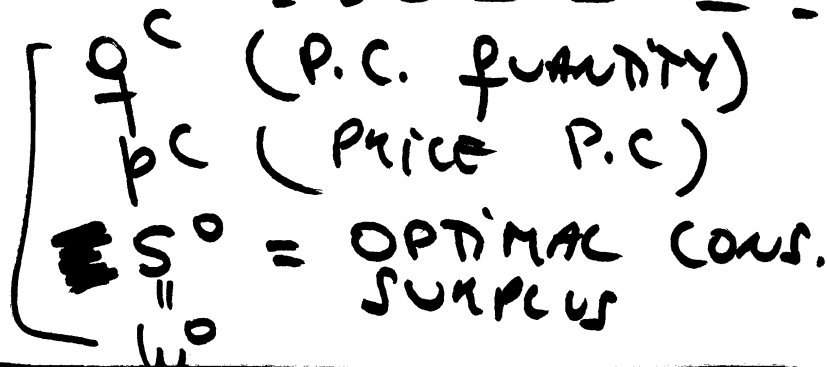 q^C (P.C. QUANTITY)
p^C (PRICE P.C)
S^0 = OPTIMAL CONS.
SURPLUS
||
W^0